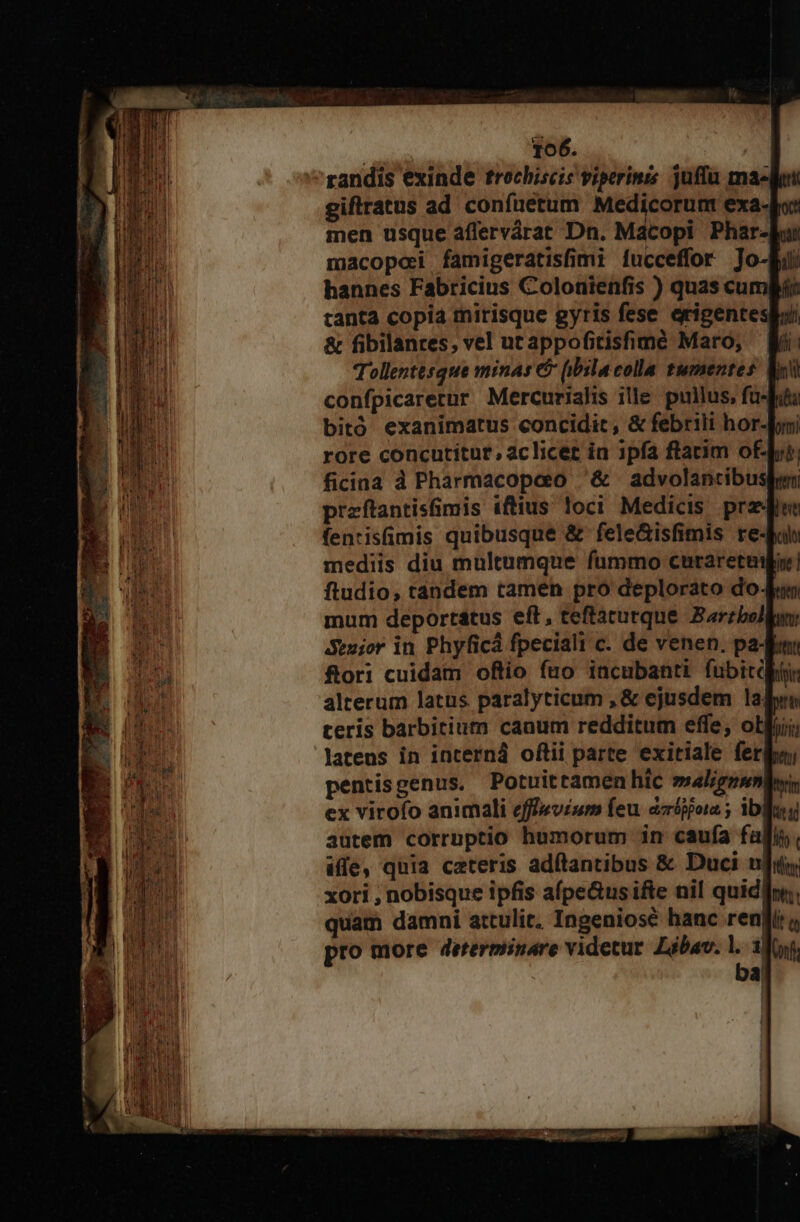 106.
randis exinde trochiscis viperinis juſſu ma-
giſtratus ad conſuetum Medicorum exa-
men usque aſſervárat Dn. Macopi Phar-
macopœi famigeratisſimi ſucceſſor Jo-
hannes Fabricius Colonienſis ) quas cum
tanta copia mirisque gyris ſese erigentes
& ſibilantes, vel ut appoſitisſimè Maro,
Tollentesque minas & ſibila colla tumentes
conſpicaretur Mercurialis ille pullus, ſu-
bitò exanimatus concidit, & febrili hor-
rore concutitur, ac licet in ipſa ſtatim of-
ficina à Pharmacopœo & advolantibus
præſtantisſimis iſtius loci Medicis præ-
ſentisſimis quibusque & ſelectisſimis re-
mediis diu multumque ſummo curaretur
ſtudio, tandem tamen pro deplorato do-
mum deportatus eſt, teſtaturque Barthol
Senior in Phyſicâ ſpeciali c. de venen. pa-
ſtori cuidam oſtio ſuo incubanti ſubitò
alterum latus paralyticum , & ejusdem la-
teris barbitium canum redditum eſſe, ob
latens in internâ oſtii parte exitiale ſer-
pentis genus. Potuit tamen hîc malignum
ex viroſo animali effluvium ſeu ἀπόῤῥοια ; ibi
autem corruptio humorum in cauſa fu-
iſſe, quia cæteris adſtantibus & Duci u-
xori, nobisque ipſis aſpectus iſte nil quid-
quam damni attulit. Ingeniosè hanc rem
pro more determinare videtur Libav. l. 1
ba